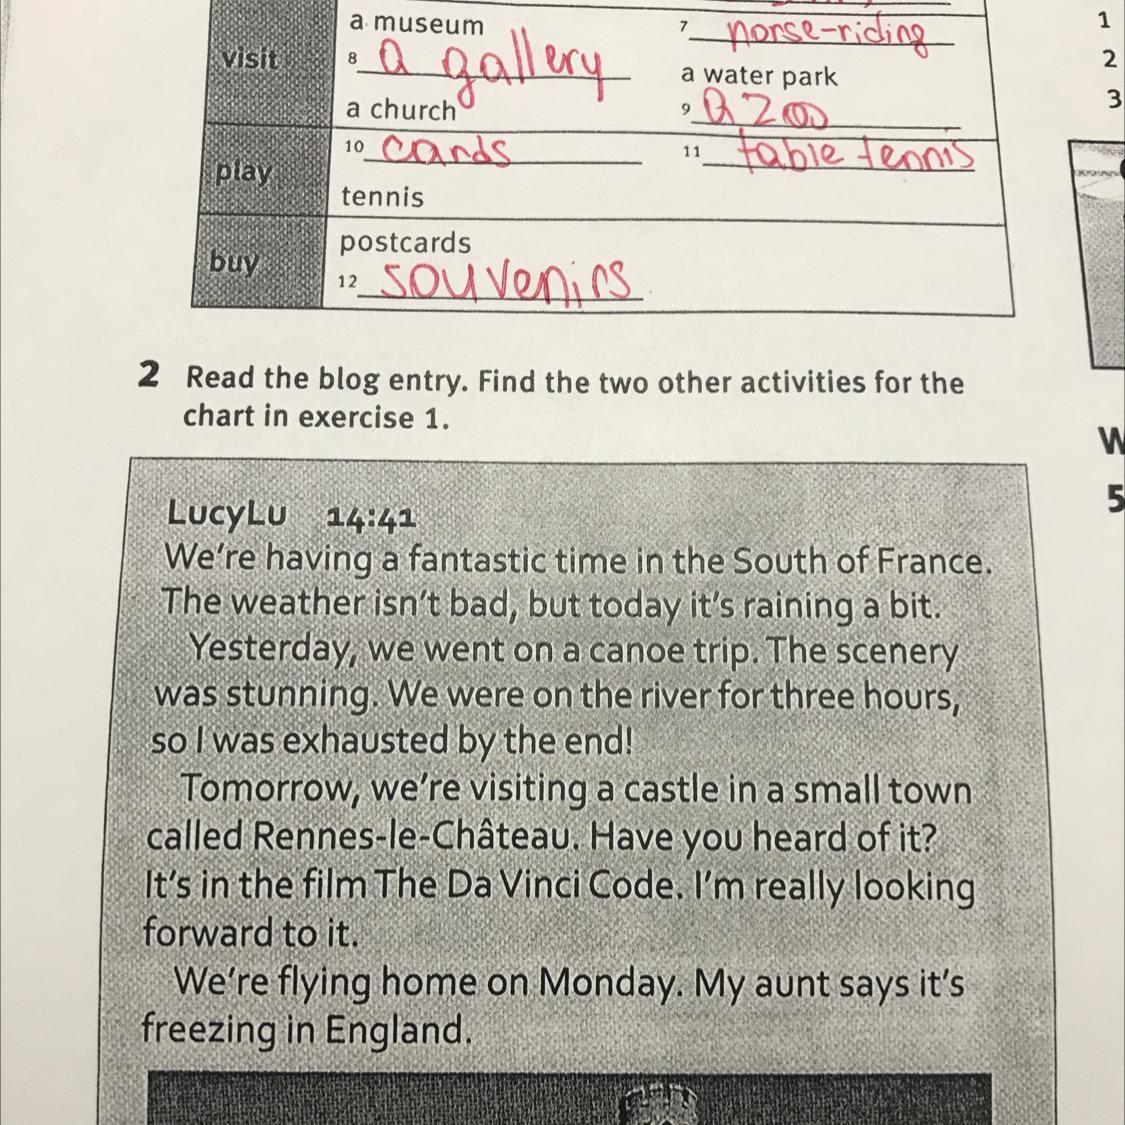 a museum
7 horse-riding
visit
8 a gallery
a water park
a church
9 a zoo
10 cards
11 table tennis
play
tennis
postcards
buy
12 souvenirs
1
2
3
2 Read the blog entry. Find the two other activities for the
chart in exercise 1.
W
5
LucyLu 14:41
We're having a fantastic time in the South of France.
The weather isn't bad, but today it's raining a bit.
Yesterday, we went on a canoe trip. The scenery
was stunning. We were on the river for three hours,
so I was exhausted by the end!
Tomorrow, we're visiting a castle in a small town
called Rennes-le-Château. Have you heard of it?
It's in the film The Da Vinci Code. I'm really looking
forward to it.
We're flying home on Monday. My aunt says it's
freezing in England.